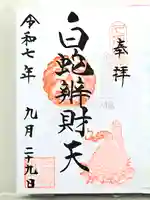 奉拝
白蛇辨財天
令和七年 九月二十九日